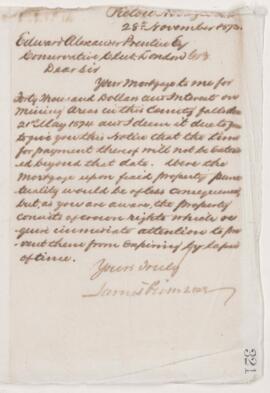 Pictou
28th November 1873.
Edward Alexander Prentice Esq
Conservative Club London GB
Dear Sir
Your Mortgage to me for
Forty Thousand Dollars and Interest on
Mining Areas in this County falls due
21st May 1874 and I deem it due to you
to give you this notice that the time
for payment thereof will not be exten
ded beyond that date. Were the
Mortgage upon fixed property punc
tuality would be of less consequence,
but, as you are aware, the property
consists of crown rights which re
quire immediate attention to pre
vent them from expiring by lapse
of time.
Yours truly
James
321